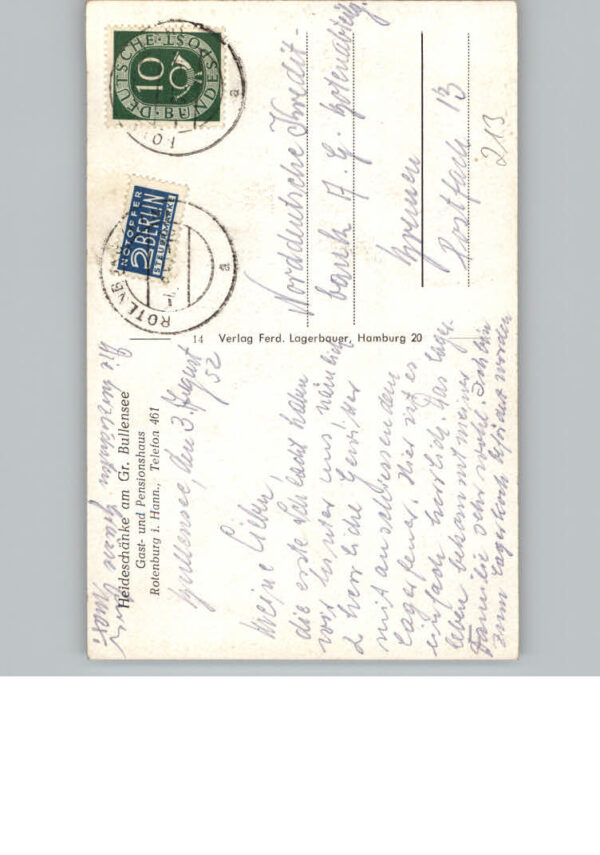 Heideschänke am Gr. Bullensee
Gast- und Pensionshaus
Rotenburg i. Hann., Telefon 461
Bullensee, den 3. August
52
Meine Lieben!
die erste Schlacht haben
wir hinter uns nämlich
2 herrliche Gewitter
mit anschliessendem
Lagerfeuer. Hier ist es
einfach herrlich. Das Lager-
leben bekommt meiner
Familie sehr wohl. Ich bin
zum Lagerkoch befördert worden
Die herzlichsten
Grüsse
14 Verlag Ferd. Lagerbauer, Hamburg 20
DEUTSCHE BUNDESPOST
10
NOTOPFER
2 BERLIN
STEUERMARKE
ROTENB
a
a
Norddeutsche Kredit-
bank A. G.
Bremen
Postfach 13
213